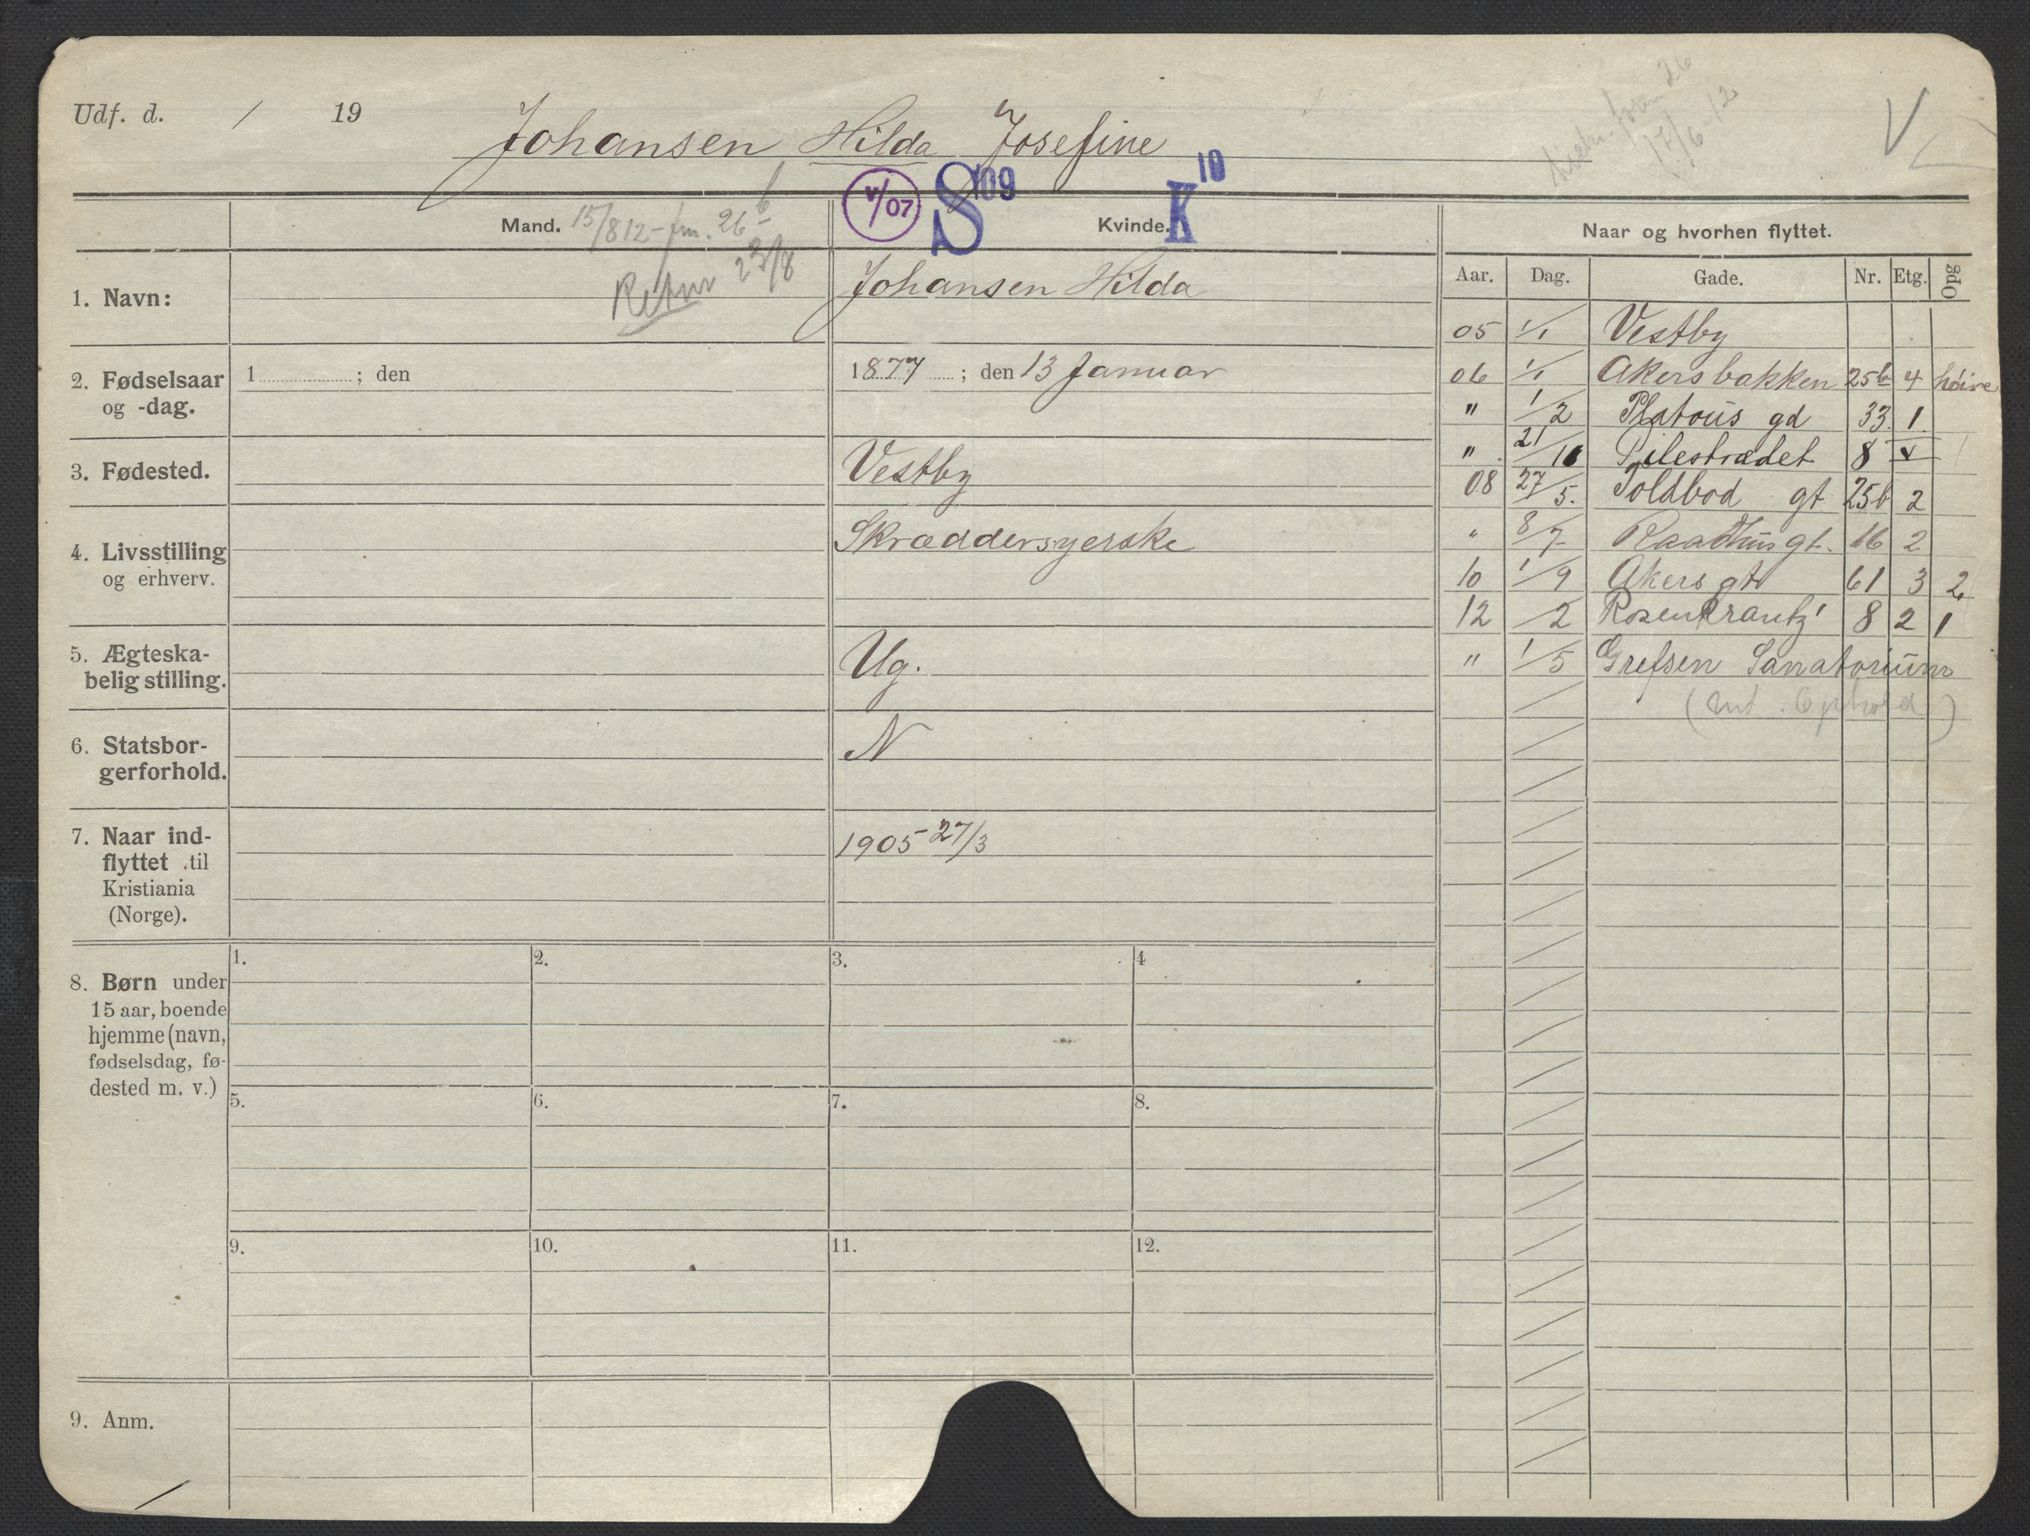 Udf. d. / 19
Johansen Hilda Josefine
17/6 12
V
V/07 S 109 K 10
Mand. 15/8 12 - fm. 26 b
Kvinde.
Naar og hvorhen flyttet.
Retur 23/8
Aar. Dag. Gade. Nr. Etg. Opg
1. Navn:
Johansen Hilda
2. Fødselsaar
og -dag.
1 ; den
1877 ; den 13 Januar
3. Fødested.
Vestby
4. Livsstilling
og erhverv.
Skræddersyerske
5. Ægteska-
belig stilling.
Ug.
6. Statsbor-
gerforhold.
N
7. Naar ind-
flyttet til
Kristiania
(Norge).
1905 27/3
05 1/1 Vestby
06 1/1 Akersbakken 25b 4 høire
" 1/2 Platous gd 33 1.
" 21/10 Pilestrædet 8 V
08 27/5. Toldbod gt 25b 2
" 8/7 Raadhus gt. 16 2
10 1/9 Akers gt 61 3 2
12 /2 Rosenkrantz' 8 2 1
" 1/5 Grefsen Sanatorium
(mt. Ophold)
8. Børn under
15 aar, boende
hjemme (navn,
fødselsdag, fø-
dested m. v.)
1. 2. 3. 4
5. 6. 7. 8.
9. 10. 11. 12.
9. Anm.